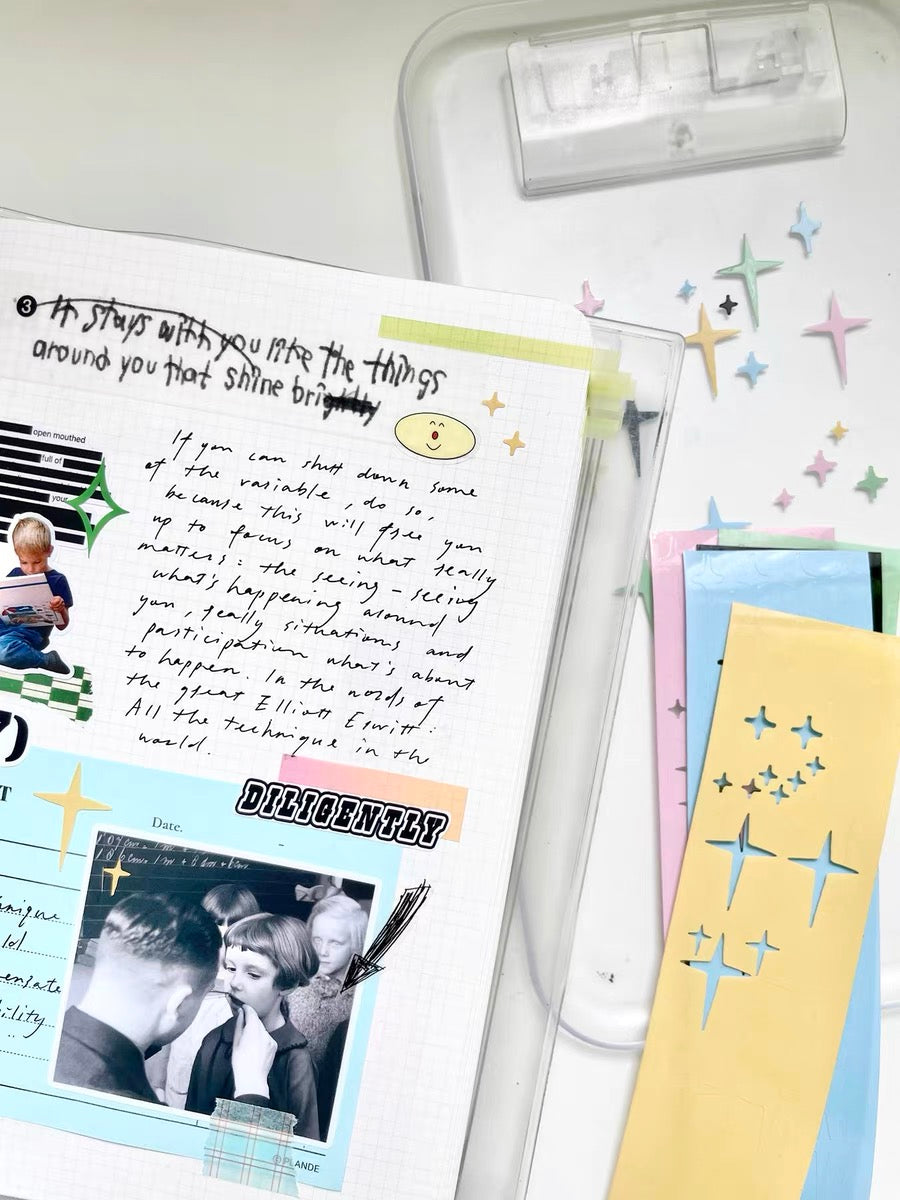 3
It stays with you like the things
around you that shine brightly
open mouthed
full of
your
If you can shut down some
of the variable, do so,
because this will free you
up to focus on what really
matters: the seeing - seeing
what's happening around
you, really situations and
participation what's about
to happen. In the words of
the great Elliott Erwitt:
All the technique in the
world.
DILIGENTLY
T
Date.
nique
ld
ensate
ility
..
© PLANDE